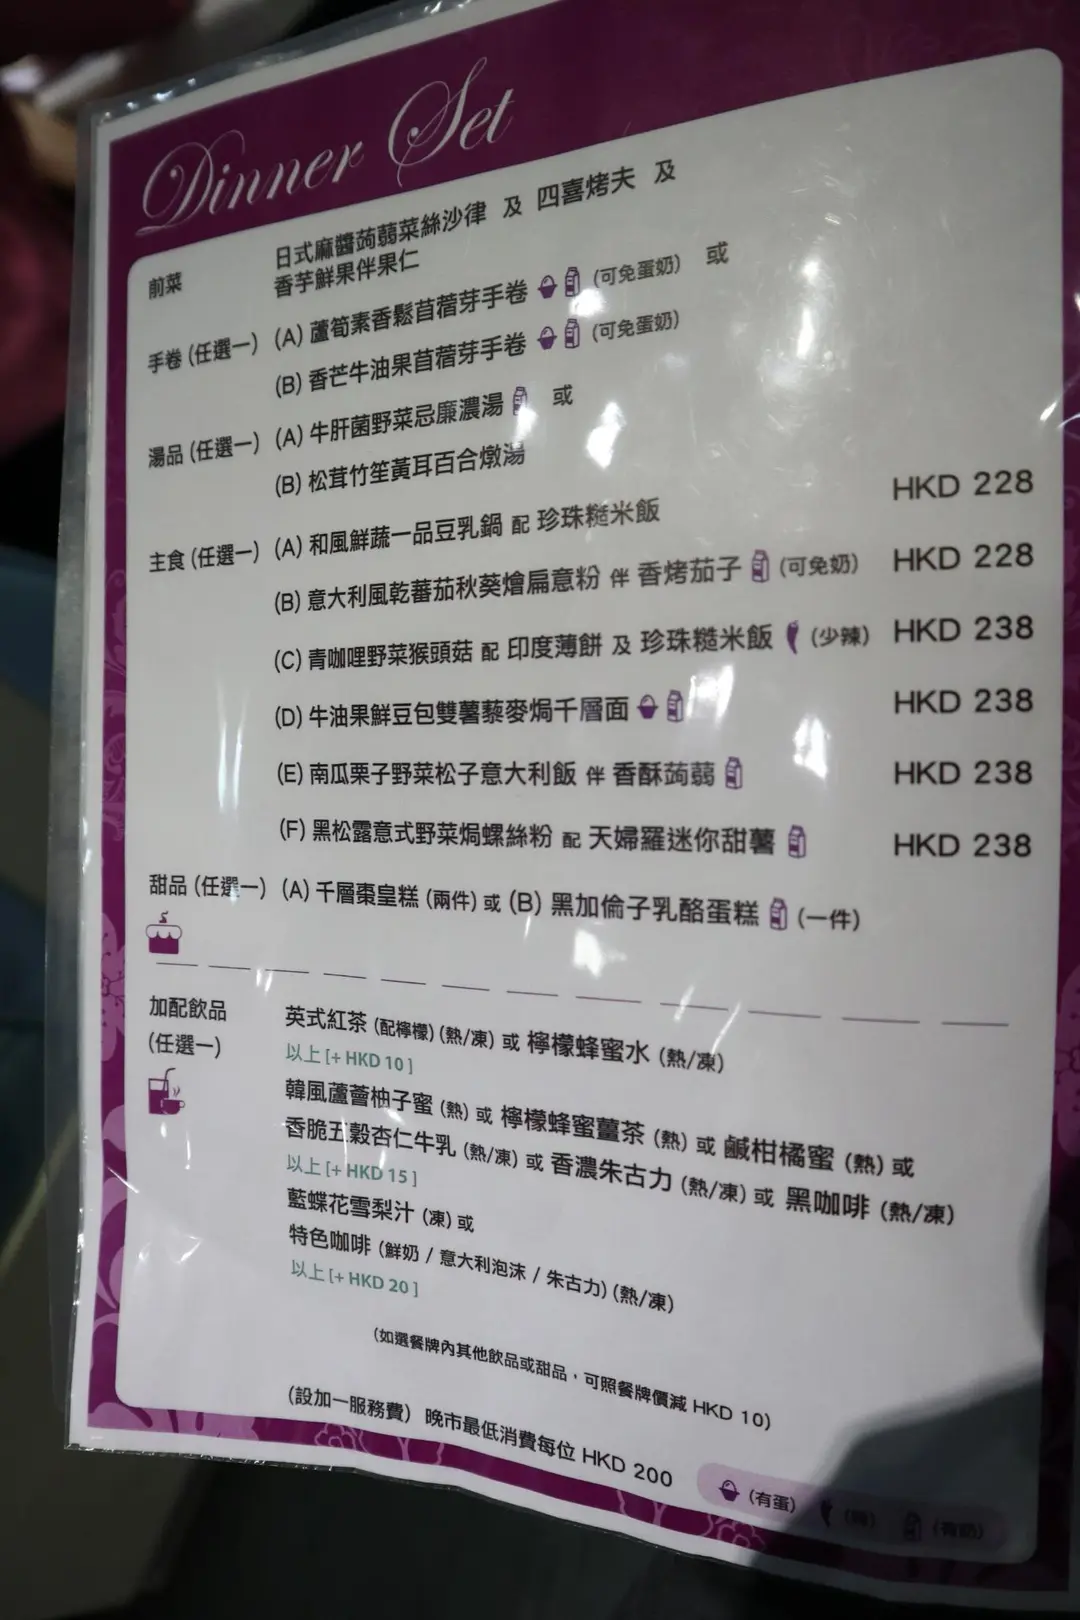 Dinner Set
前菜 日式麻醬蒟蒻菜絲沙律 及 四喜烤夫 及
香芋鮮果伴果仁
手卷 (任選一) (A) 蘆筍素香鬆苜蓿芽手卷 (可免蛋奶) 或
(B) 香芒牛油果苜蓿芽手卷 (可免蛋奶)
湯品 (任選一) (A) 牛肝菌野菜忌廉濃湯 或
(B) 松茸竹笙黃耳百合燉湯
主食 (任選一) (A) 和風鮮蔬一品豆乳鍋 配 珍珠糙米飯 HKD 228
(B) 意大利風乾蕃茄秋葵燴扁意粉 伴 香烤茄子 (可免奶) HKD 228
(C) 青咖哩野菜猴頭菇 配 印度薄餅 及 珍珠糙米飯 (少辣) HKD 238
(D) 牛油果鮮豆包雙薯藜麥焗千層面 HKD 238
(E) 南瓜栗子野菜松子意大利飯 伴 香酥蒟蒻 HKD 238
(F) 黑松露意式野菜焗螺絲粉 配 天婦羅迷你甜薯 HKD 238
甜品 (任選一) (A) 千層棗皇糕 (兩件) 或 (B) 黑加倫子乳酪蛋糕 (一件)
加配飲品 英式紅茶 (配檸檬) (熱/凍) 或 檸檬蜂蜜水 (熱/凍)
(任選一) 以上 [+ HKD 10]
韓風蘆薈柚子蜜 (熱) 或 檸檬蜂蜜薑茶 (熱) 或 鹹柑橘蜜 (熱) 或
香脆五穀杏仁牛乳 (熱/凍) 或 香濃朱古力 (熱/凍) 或 黑咖啡 (熱/凍)
以上 [+ HKD 15]
藍蝶花雪梨汁 (凍) 或
特色咖啡 (鮮奶 / 意大利泡沫 / 朱古力) (熱/凍)
以上 [+ HKD 20]
(如選餐牌內其他飲品或甜品，可照餐牌價減 HKD 10)
(設加一服務費) 晚市最低消費每位 HKD 200
(有蛋) (辣) (有奶)